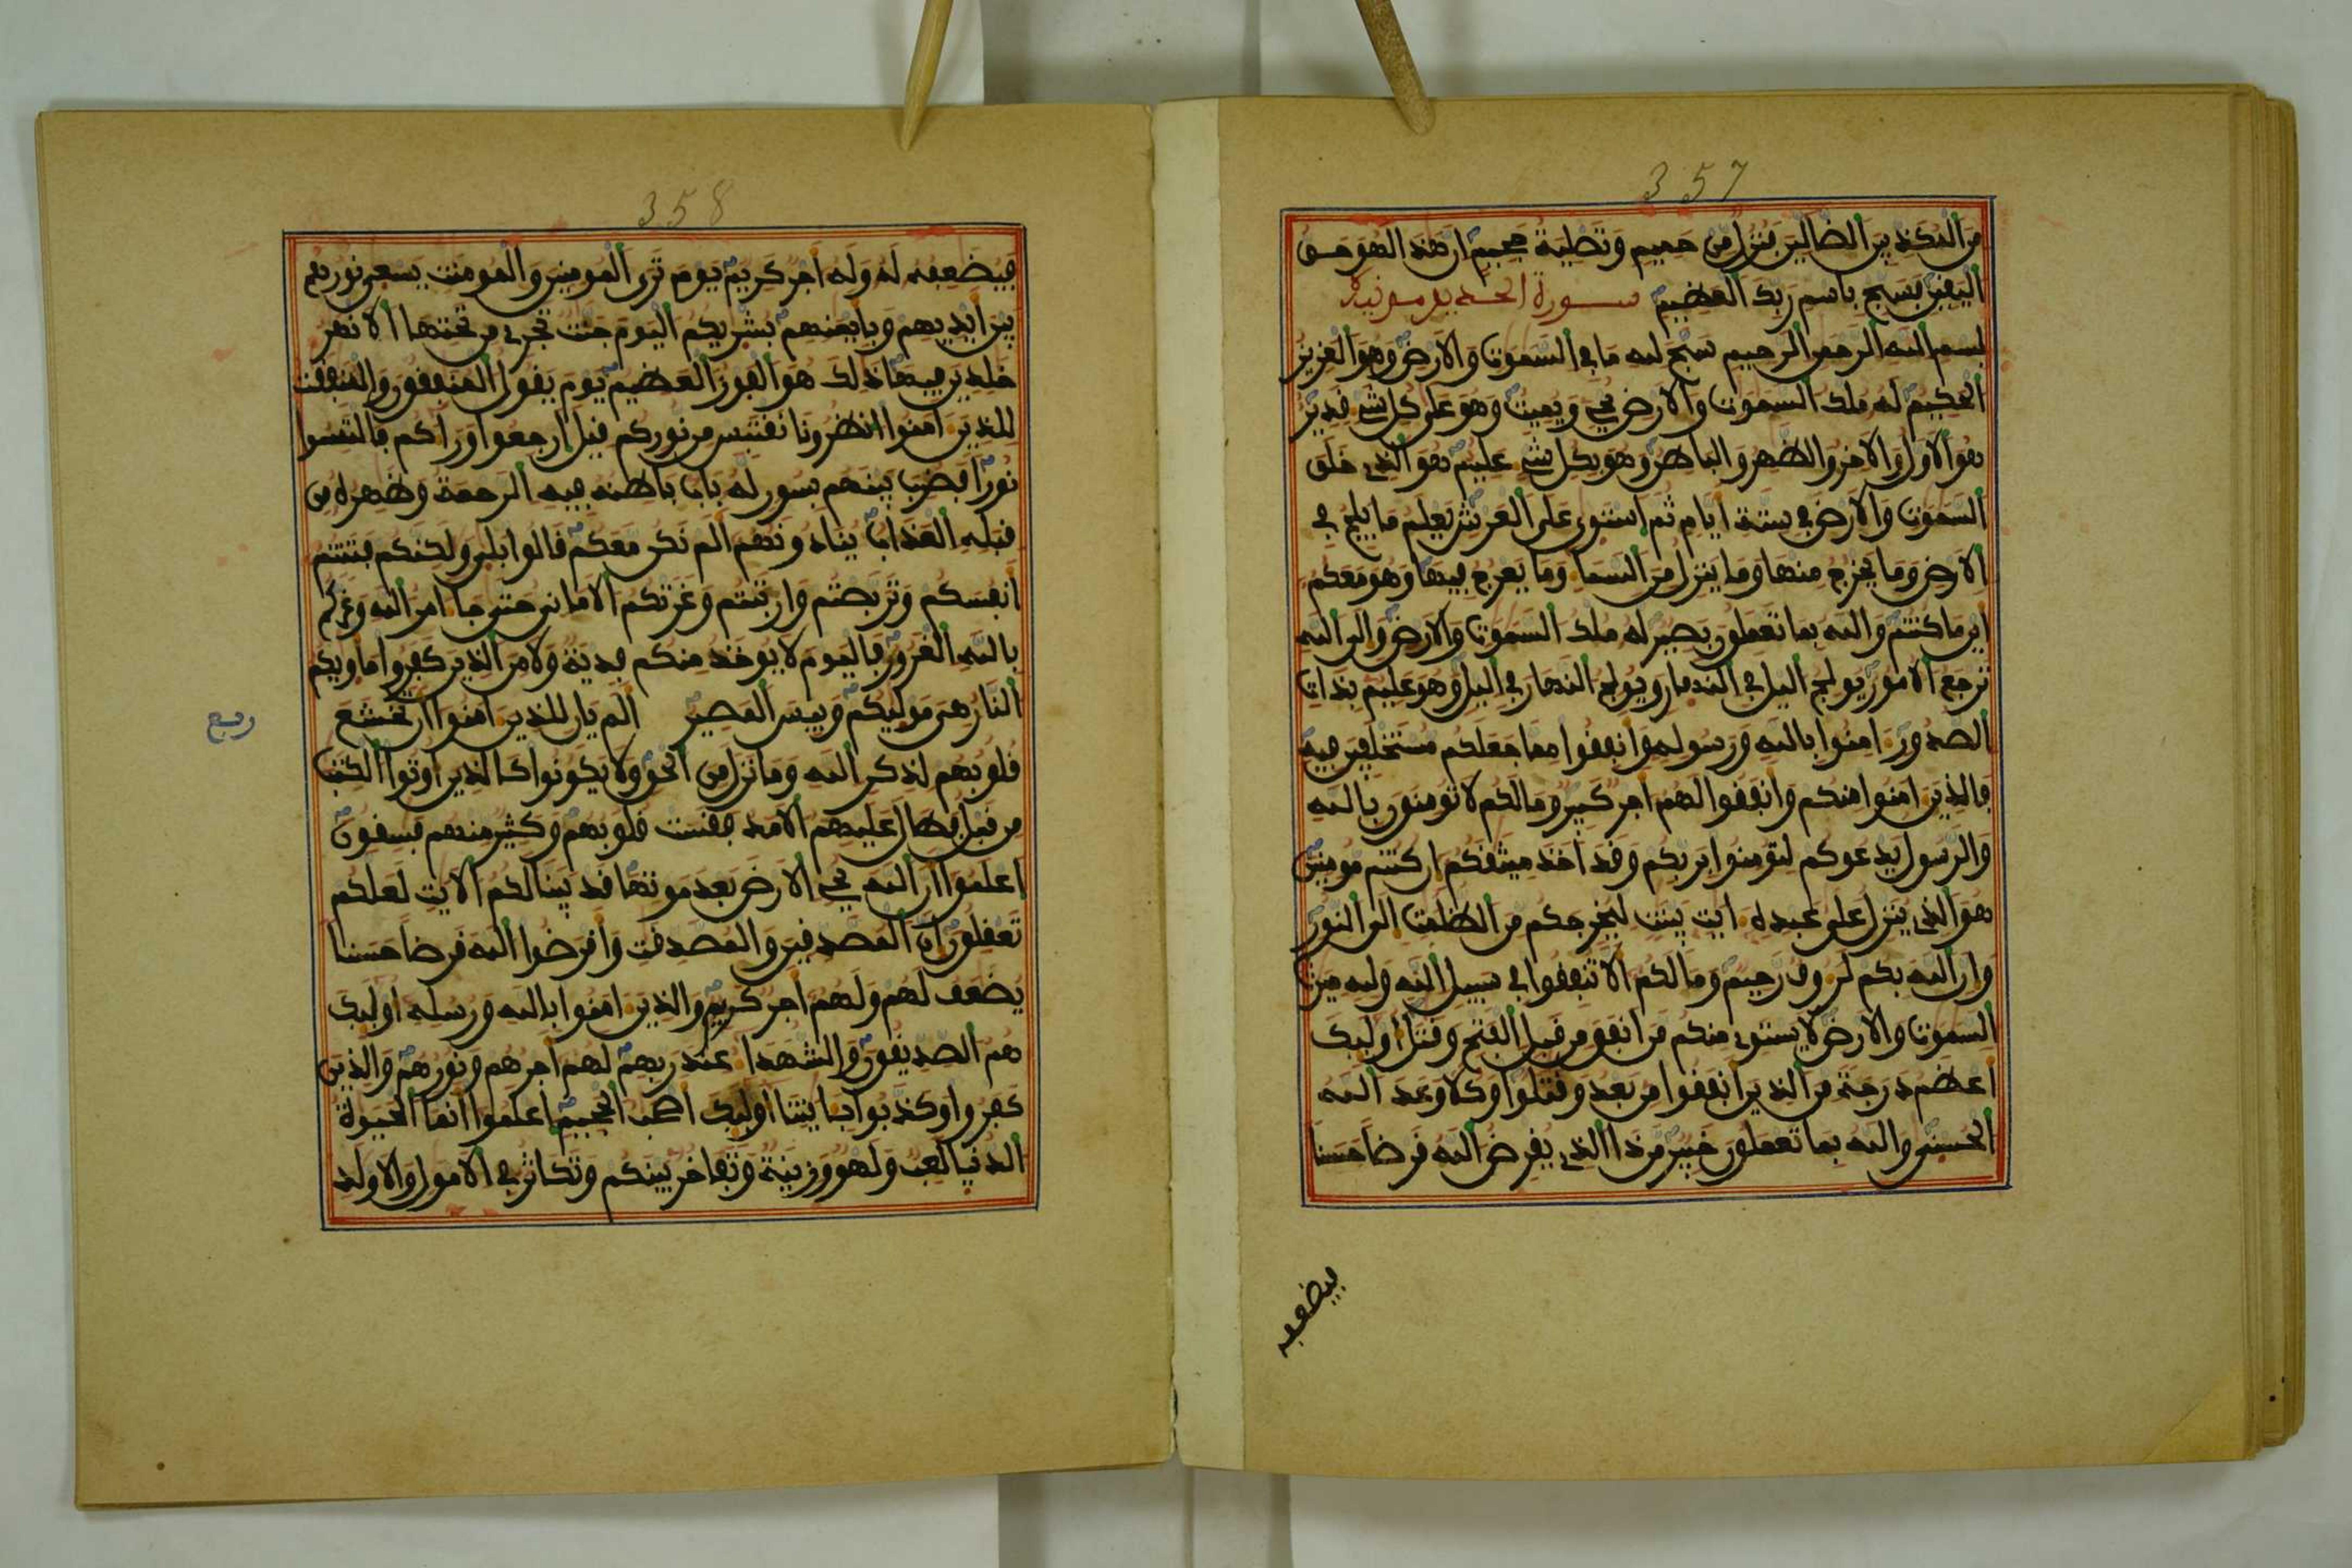 357
من المكذبين الضالين فنزل من حميم وتصلية جحيم ان هذا لهو حق
اليقين فسبح باسم ربك العظيم سورة الحديد مدنية
بسم الله الرحمن الرحيم سبح لله ما في السموت والارض وهو العزيز
الحكيم له ملك السموت والارض يحي ويميت وهو على كل شي قدير
هو الاول والاخر والظهر والباطن وهو بكل شي عليم هو الذي خلق
السموت والارض في ستة ايام ثم استوى على العرش يعلم ما يلج في
الارض وما يخرج منها وما ينزل من السما وما يعرج فيها وهو معكم
اين ما كنتم والله بما تعملون بصير له ملك السموت والارض والى الله
ترجع الامور يولج اليل في النهار ويولج النهار في اليل وهو عليم بذات
الصدور امنوا بالله ورسوله وانفقوا مما جعلكم مستخلفين فيه
فالذين امنوا منكم وانفقوا لهم اجر كبير وما لكم لا تومنون بالله
والرسول يدعوكم لتومنوا بربكم وقد اخذ ميثقكم ان كنتم مومنين
هو الذي ينزل على عبده ايت بينت ليخرجكم من الظلمت الى النور
وان الله بكم لروف رحيم وما لكم الا تنفقوا في سبيل الله ولله ميرث
السموت والارض لا يستوي منكم من انفق من قبل الفتح وقتل اوليك
اعظم درجة من الذين انفقوا من بعد وقتلوا وكلا وعد الله
الحسنى والله بما تعملون خبير من ذا الذي يقرض الله قرضا حسنا
فيضعفه
358
فيضعفه له وله اجر كريم يوم ترى المومنين والمومنت يسعى نورهم
بين ايديهم وبايمنهم بشريكم اليوم جنت تجري من تحتها الانهر
خلدين فيها ذلك هو الفوز العظيم يوم يقول المنفقون والمنفقت
للذين امنوا انظرونا نقتبس من نوركم قيل ارجعوا وراكم فالتمسوا
نورا فضرب بينهم بسور له باب باطنه فيه الرحمة وظهره من
قبله العذاب ينادونهم الم نكن معكم قالوا بلى ولكنكم فتنتم
انفسكم وتربصتم وارتبتم وغرتكم الاماني حتى جا امر الله وغركم
بالله الغرور فاليوم لا يوخذ منكم فدية ولا من الذين كفروا ماويكم
النار هي موليكم وبيس المصير الم يان للذين امنوا ان تخشع
ربع
قلوبهم لذكر الله وما نزل من الحق ولا يكونوا كالذين اوتوا الكتب
من قبل فطال عليهم الامد فقست قلوبهم وكثير منهم فسقون
اعلموا ان الله يحي الارض بعد موتها قد بينا لكم الايت لعلكم
تعقلون ان المصدقين والمصدقت واقرضوا الله قرضا حسنا
يضعف لهم ولهم اجر كريم والذين امنوا بالله ورسله اوليك
هم الصديقون والشهدا عند ربهم لهم اجرهم ونورهم والذين
كفروا وكذبوا بايتنا اوليك اصحب الجحيم اعلموا انما الحيوة
الدنيا لعب ولهو وزينة وتفاخر بينكم وتكاثر في الامول والاولد